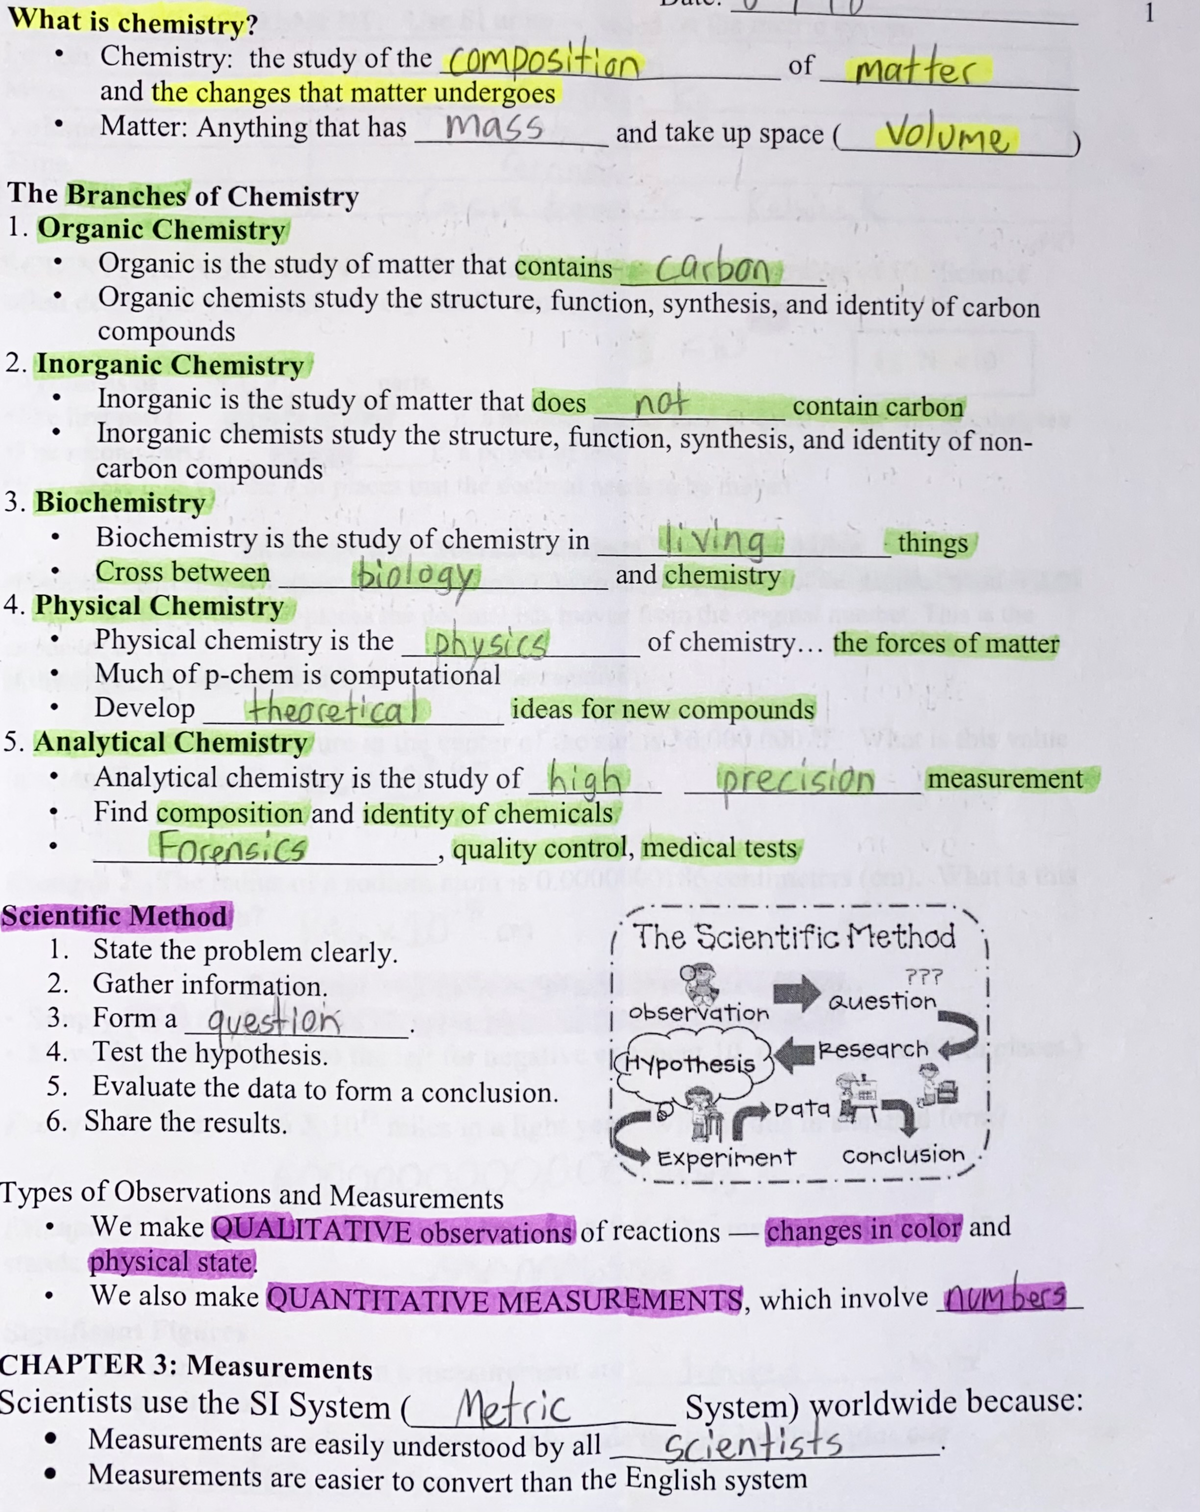 Date:
1
What is chemistry?
• Chemistry: the study of the composition of matter
and the changes that matter undergoes
• Matter: Anything that has mass and take up space ( Volume )
The Branches of Chemistry
1. Organic Chemistry
• Organic is the study of matter that contains carbon
• Organic chemists study the structure, function, synthesis, and identity of carbon
compounds
2. Inorganic Chemistry
• Inorganic is the study of matter that does not contain carbon
• Inorganic chemists study the structure, function, synthesis, and identity of non-
carbon compounds
3. Biochemistry
• Biochemistry is the study of chemistry in living things
• Cross between biology and chemistry
4. Physical Chemistry
• Physical chemistry is the physics of chemistry... the forces of matter
• Much of p-chem is computational
• Develop theoretical ideas for new compounds
5. Analytical Chemistry
• Analytical chemistry is the study of high precision measurement
• Find composition and identity of chemicals
• Forensics, quality control, medical tests
Scientific Method
1. State the problem clearly.
2. Gather information.
3. Form a question
4. Test the hypothesis.
5. Evaluate the data to form a conclusion.
6. Share the results.
The Scientific Method
observation
???
Question
Research
Hypothesis
Data
Experiment
Conclusion
Types of Observations and Measurements
• We make QUALITATIVE observations of reactions — changes in color and
physical state.
• We also make QUANTITATIVE MEASUREMENTS, which involve numbers
CHAPTER 3: Measurements
Scientists use the SI System ( Metric System) worldwide because:
• Measurements are easily understood by all scientists.
• Measurements are easier to convert than the English system